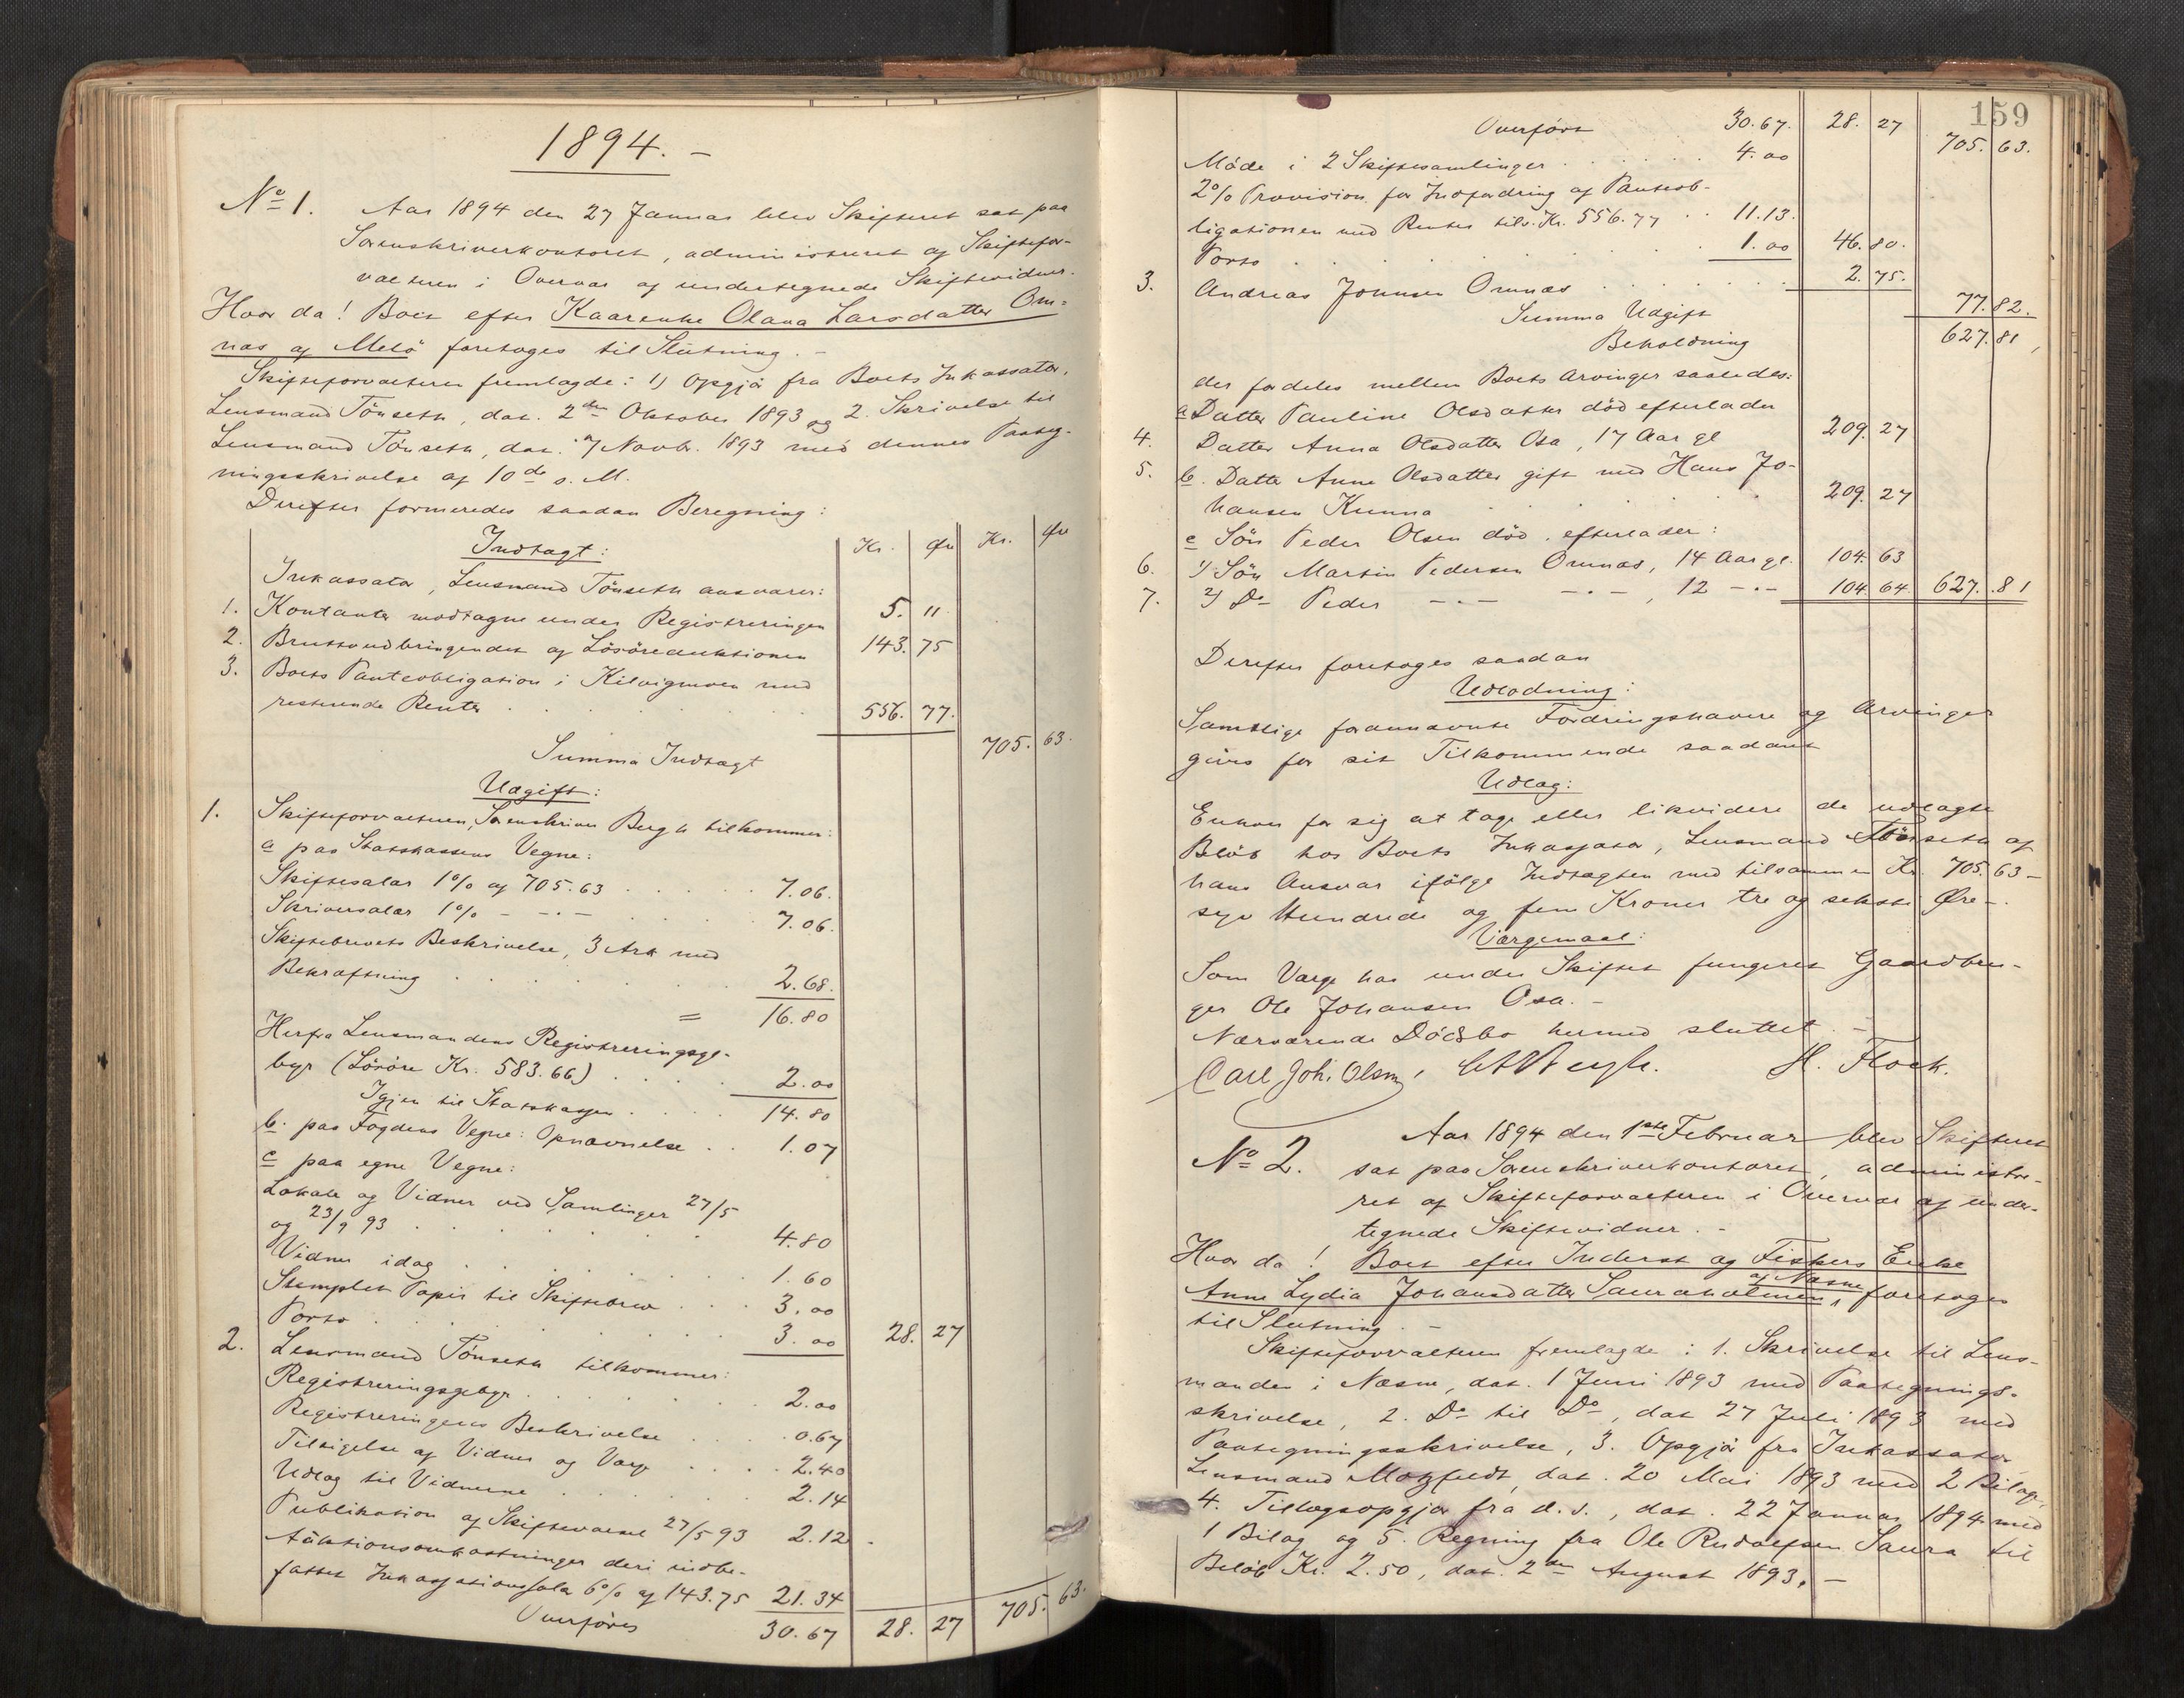 1894. –
No 1. Aar 1894 den 27 Januar blev Skifteret sat paa
Sorenskriverkontoret, administreret af Skiftefor-
valteren i Overvær af undertegnede Skiftevidner.
Hvor da! Boet efter Kaarenke Olava Larsdatter Orn-
næs af Melö foretoges til Slutning. –
Skifteforvalteren fremlagde: 1) Opgjör fra Boets Inkassator,
Lensmand Tönseth, dat. 2den Oktober 1893 og 2. Skrivelse til
Lensmand Tönseth, dat. 7 Novbr. 1893 med dennes Paateg-
ningsskrivelse af 10de s. M.
Derefter formeredes saadan Beregning:
Kr. Øre Kr. Øre
Indtægt:
Inkassator, Lensmand Tönseth ansvarer:
1. Kontanter modtagne under Registreringen 5. 11
2. Bruttoudbringendet af Lösöreauktionen 143. 75
3. Boets Panteobligation i Kilvigmoen med
resterende Renter . . . . . 556. 77.
Summa Indtægt 705. 63.
Udgift:
1. Skifteforvalteren, Sorenskriver Bergh tilkommer:
a paa Statskassens Vegne:
Skiftesalær 1% af 705.63 . . . . . 7.06.
Skriversalær 1% – –.– . . . . 7.06.
Skiftebrevets Beskrivelse, 3 Ark med
Bekræftning . . . . . . 2.68.
= 16.80
Herfra Lensmandens Registreringsge-
byr (Lösöre Kr. 583.66) . . . . 2.00
Igjen til Statskassen . . . . 14.80
b. paa Fogdens Vegne: Opnævnelse . . 1.07
c paa egne Vegne:
Lokale og Vidner ved Samlinger 27/5
og 23/9 93 . . . . . . . 4.80
Vidner idag . . . . . . . 1.60
Stemplet Papir til Skiftebrev . . . . 3.00
Porto . . . . . . . . 3.00 28. 27
2. Lensmand Tönseth tilkommer:
Registreringsgebyr . . . . . . 2.00
Registreringens Beskrivelse . . . . 0.67
Tilsigelse af Vidner og Værge . . . . 2.40
Udlæg til Vidnerne . . . . . 2.14
Publikation af Skiftevæsel 27/5 93 2.12.
Auktionsomkostninger deri indbe-
fattet Inkassationssalær 6% af 143.75 21.34
Overföres 30.67 28. 27 705. 63.
159
Overfört 30.67. 28. 27 705. 63.
Möde i 2 Skiftesamlinger . . . . . . 4.00
2% Provision for Indfordring af Panteob-
ligationen med Renter tils. Kr. 556.77 . . 11.13.
Porto . . . . . . . . 1.00 46. 80.
3. Andreas Johnsen Ornnæs . . . . . . . 2. 75.
Summa Udgift 77. 82.
Beholdning 627. 81,
der fordeles mellem Boets Arvinger saaledes:
a Datter Pauline Olsdatter död efterlader
4. Datter Anna Olsdatter Osa, 17 Aar gl 209. 27
5. b. Datter Anne Olsdatter gift med Hans Jo-
hansen Kunna . . . . . . 209. 27
c Sön Peder Olsen död, efterlader:
6. 1) Sön Martin Pedersen Ornnæs, 14 Aar gl. 104. 63
7. 2) Do Peder –.– –.–, 12 –.– 104. 64 627. 81
Derefter foretoges saadan
Udlodning:
Samtlige forannævnte Fordringshavere og Arvinger
gives for sit Tilkommende saadant
Udlæg:
Enhver for sig at tage eller likvidere de udlagte
Beløb hos Boets Inkassator, Lensmand Tönseth af
hans Ansvar ifölge Indtægten med tilsammen Kr. 705.63 –
syv Hundrede og fem Kroner tre og seksti Øre –.
Værgemaal:
Som Værge har under Skiftet fungeret Gaardbru-
ger Ole Johansen Osa. –
Nærværende Dödsbo hermed sluttet. –
Carl Joh. Olsen, Bergh. H. Flock.
No 2. Aar 1894 den 1ste Februar blev Skifteret
sat paa Sorenskriverkontoret, administre-
ret af Skifteforvalteren i Overvær af under-
tegnede Skiftevidner. –
Hvor da! Boet efter Inderst og Fiskers Enke
Anne Lydia Johansdatter Sauraholmen, af Næsne foretoges
til Slutning. –
Skifteforvalteren fremlagde: 1. Skrivelse til Lens-
manden i Næsne, dat. 1 Juni 1893 med Paategnings-
skrivelse, 2. Do til Do, dat 27 Juli 1893 med
Paategningsskrivelse, 3. Opgjör fra Inkassator
Lensmand Motzfeldt, dat. 20 Mai 1893 med 2 Bilag,
4. Tillægsopgjør fra d. s., dat. 22 Januar 1894 med
1 Bilag og 5. Regning fra Ole Rudolfsen Saura til
Beløb Kr. 2.50, dat. 2den August 1893. –